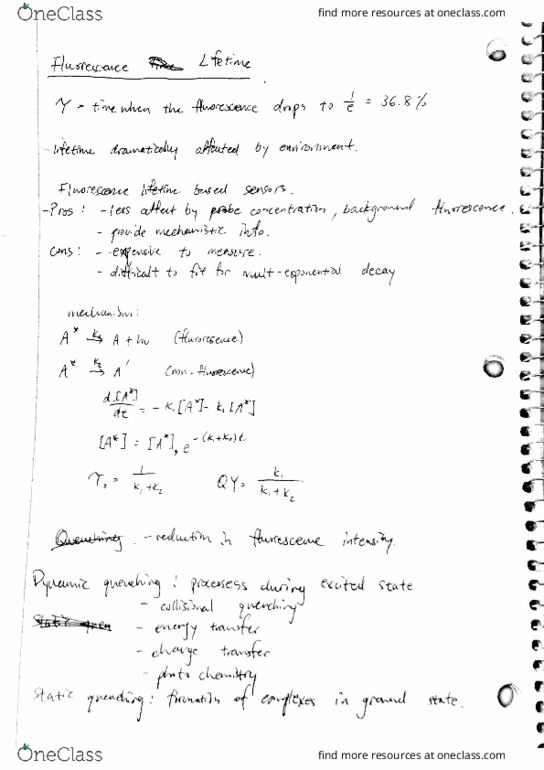 OneClass
find more resources at oneclass.com
Fluorescence Lifetime
τ = time when the fluorescence drops to 1/e = 36.8%
- lifetime dramatically affected by environment.
Fluorescence lifetime based sensors.
- Pros: - less affect by probe concentration, background fluorescence.
- provide mechanistic info.
Cons: - expensive to measure.
- difficult to fit for mult-exponential decay
mechanism:
A* →k₁ A + hν (fluorescence)
A* →k₂ A' (non-fluorescence)
d[A*]/dt = - k₁[A*] - k₂[A*]
[A*] = [A*]₀ e^-(k₁+k₂)t
τ₀ = 1/(k₁+k₂) QY = k₁/(k₁+k₂)
Quenching - reduction in fluorescence intensity.
Dynamic quenching: processess during excited state
- collisional quenching
- energy transfer
- charge transfer
- photo chemistry
Static quenching: formation of complexes in ground state.
OneClass
find more resources at oneclass.com